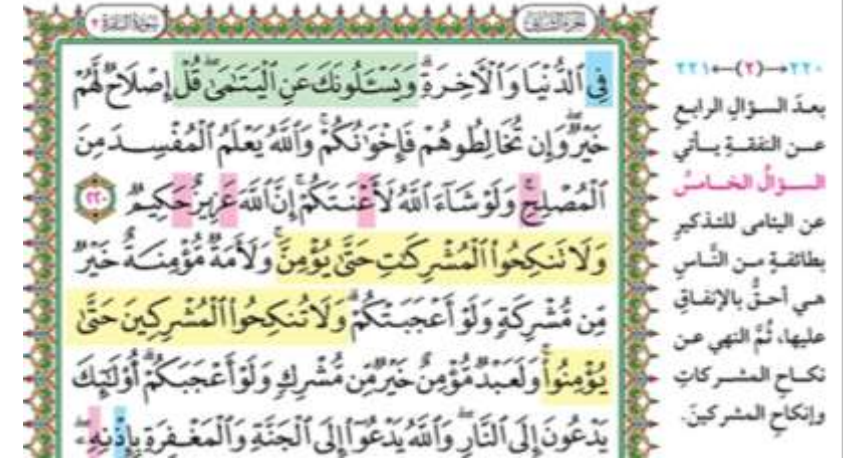 سورة البقرة ٢
الجزء الثاني
فِي ٱلدُّنْيَا وَٱلْأٓخِرَةِۗ وَيَسْـَٔلُونَكَ عَنِ ٱلْيَتَـٰمَىٰۖ قُلْ إِصْلَاحٌ لَّهُمْ
خَيْرٌۖ وَإِن تُخَالِطُوهُمْ فَإِخْوَٰنُكُمْۚ وَٱللَّهُ يَعْلَمُ ٱلْمُفْسِدَ مِنَ
ٱلْمُصْلِحِۚ وَلَوْ شَآءَ ٱللَّهُ لَأَعْنَتَكُمْۚ إِنَّ ٱللَّهَ عَزِيزٌ حَكِيمٌ ٢٢٠
وَلَا تَنكِحُوا۟ ٱلْمُشْرِكَـٰتِ حَتَّىٰ يُؤْمِنَّۚ وَلَأَمَةٌ مُّؤْمِنَةٌ خَيْرٌ
مِّن مُّشْرِكَةٍ وَلَوْ أَعْجَبَتْكُمْۗ وَلَا تُنكِحُوا۟ ٱلْمُشْرِكِينَ حَتَّىٰ
يُؤْمِنُوا۟ۚ وَلَعَبْدٌ مُّؤْمِنٌ خَيْرٌ مِّن مُّشْرِكٍ وَلَوْ أَعْجَبَكُمْۗ أُو۟لَـٰٓئِكَ
يَدْعُونَ إِلَى ٱلنَّارِۖ وَٱللَّهُ يَدْعُوٓا۟ إِلَى ٱلْجَنَّةِ وَٱلْمَغْفِرَةِ بِإِذْنِهِۦۖ
٢٢٠←(٢)→٢٢١
بعدَ السؤالِ الرابعِ
عن النفقةِ يأتي
السؤالُ الخامسُ
عن اليتامى للتذكيرِ
بطائفةٍ من النَّاسِ
هي أحقُّ بالإنفاقِ
عليها، ثُمَّ النهي عن
نكاحِ المشركاتِ
وإنكاحِ المشركينَ.